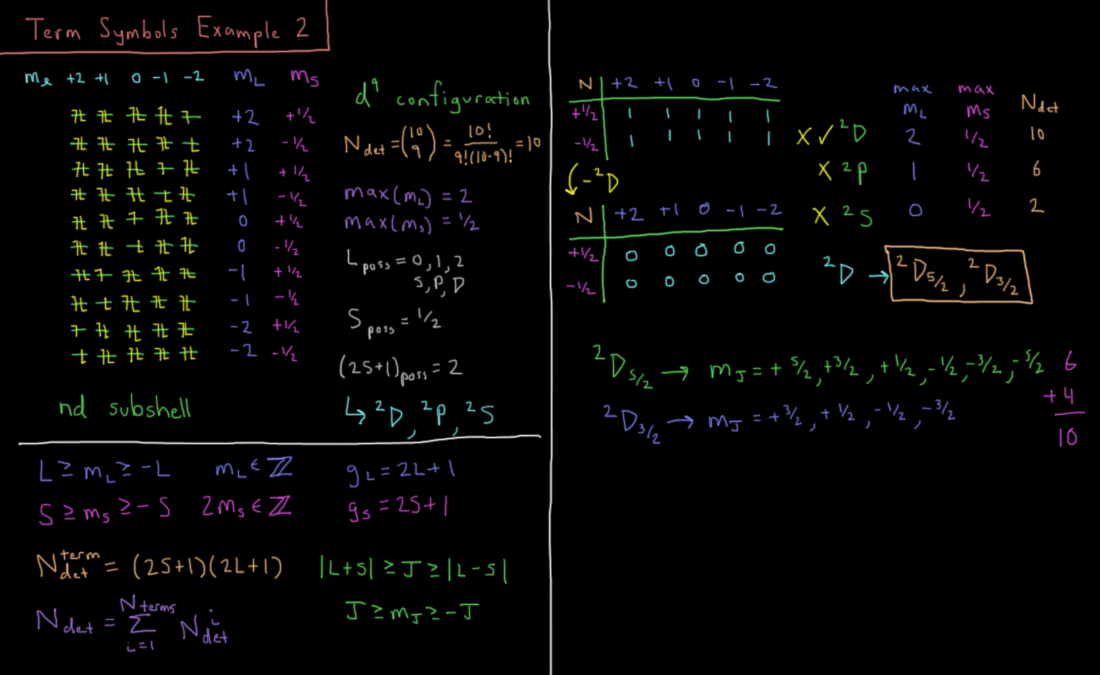 Term Symbols Example 2
mℓ +2 +1 0 -1 -2 mL mS
+2 +1/2
+2 -1/2
+1 +1/2
+1 -1/2
0 +1/2
0 -1/2
-1 +1/2
-1 -1/2
-2 +1/2
-2 -1/2
nd subshell
d⁹ configuration
Ndet = (10 9) = 10!/9!(10-9)! = 10
max(mL) = 2
max(ms) = 1/2
Lposs = 0, 1, 2
S, P, D
Sposs = 1/2
(2S+1)poss = 2
↳ ²D, ²P, ²S
L ≥ mL ≥ -L mL ∈ ℤ gL = 2L+1
S ≥ ms ≥ -S 2ms ∈ ℤ gs = 2S+1
N^term_det = (2S+1)(2L+1) |L+S| ≥ J ≥ |L-S|
Ndet = Σ_{i=1}^{Nterms} N^i_det J ≥ mJ ≥ -J
N +2 +1 0 -1 -2
+1/2 1 1 1 1 1
-1/2 1 1 1 1 1
-²D
N +2 +1 0 -1 -2
+1/2 0 0 0 0 0
-1/2 0 0 0 0 0
max mL max ms Ndet
X ✓ ²D 2 1/2 10
X ²P 1 1/2 6
X ²S 0 1/2 2
²D → ²D5/2, ²D3/2
²D5/2 → mJ = +5/2, +3/2, +1/2, -1/2, -3/2, -5/2 6
²D3/2 → mJ = +3/2, +1/2, -1/2, -3/2 +4
10